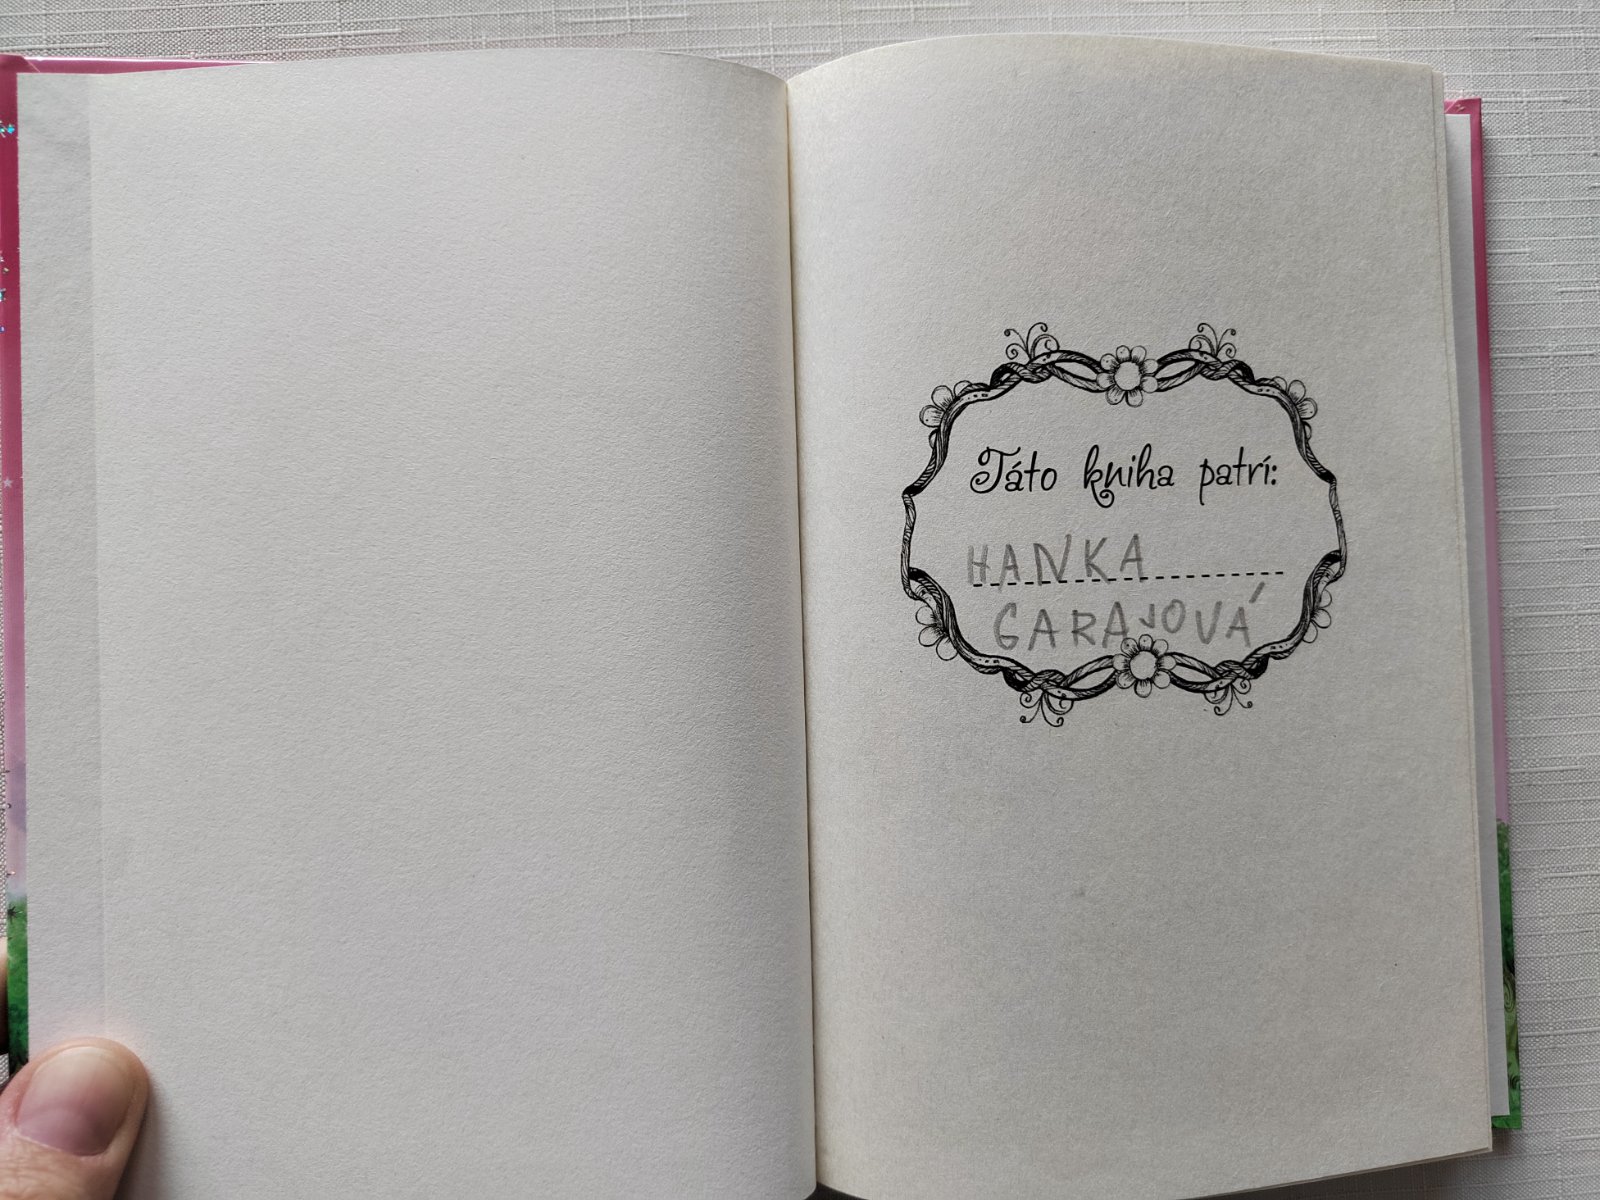 Táto kniha patrí:
HANKA
GARAJOVÁ